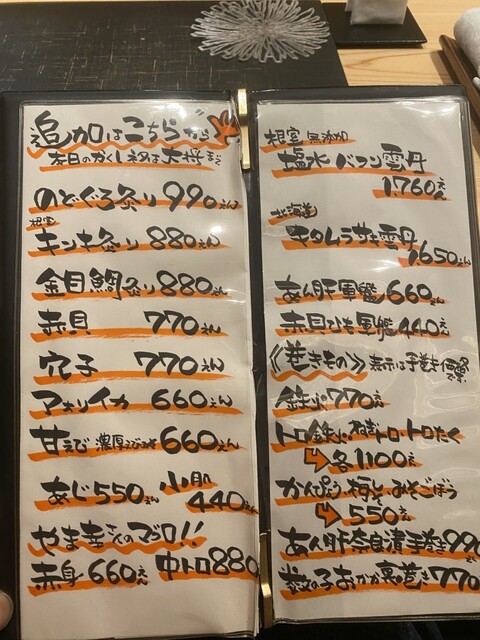 追加はこちらから
本日のかくしネタは大将まで
のどぐろ炙り 990えん
根室
キンキ炙り 880えん
金目鯛炙り 880えん
赤貝 770えん
穴子 770えん
アオリイカ 660えん
甘えび 濃厚えびみそ 660えん
あじ 550えん
440えん
やま幸さんのマグロ!!
赤身 660え
中トロ 880
根室 無添加
塩水バフン雲丹
1,760えん
北海道
キタムラサキ雲丹
1,650えん
あん肝軍艦 660えん
赤貝ひも軍艦 440えん
《巻きもの》 表示は手巻き価格
鉄火 770え
トロ鉄火・ねぎトロ・トロたく
各1100え
かんぴょう・梅しそ・みそごぼう
550え
あん肝奈良漬手巻き 990
数の子おかか裏巻き 770